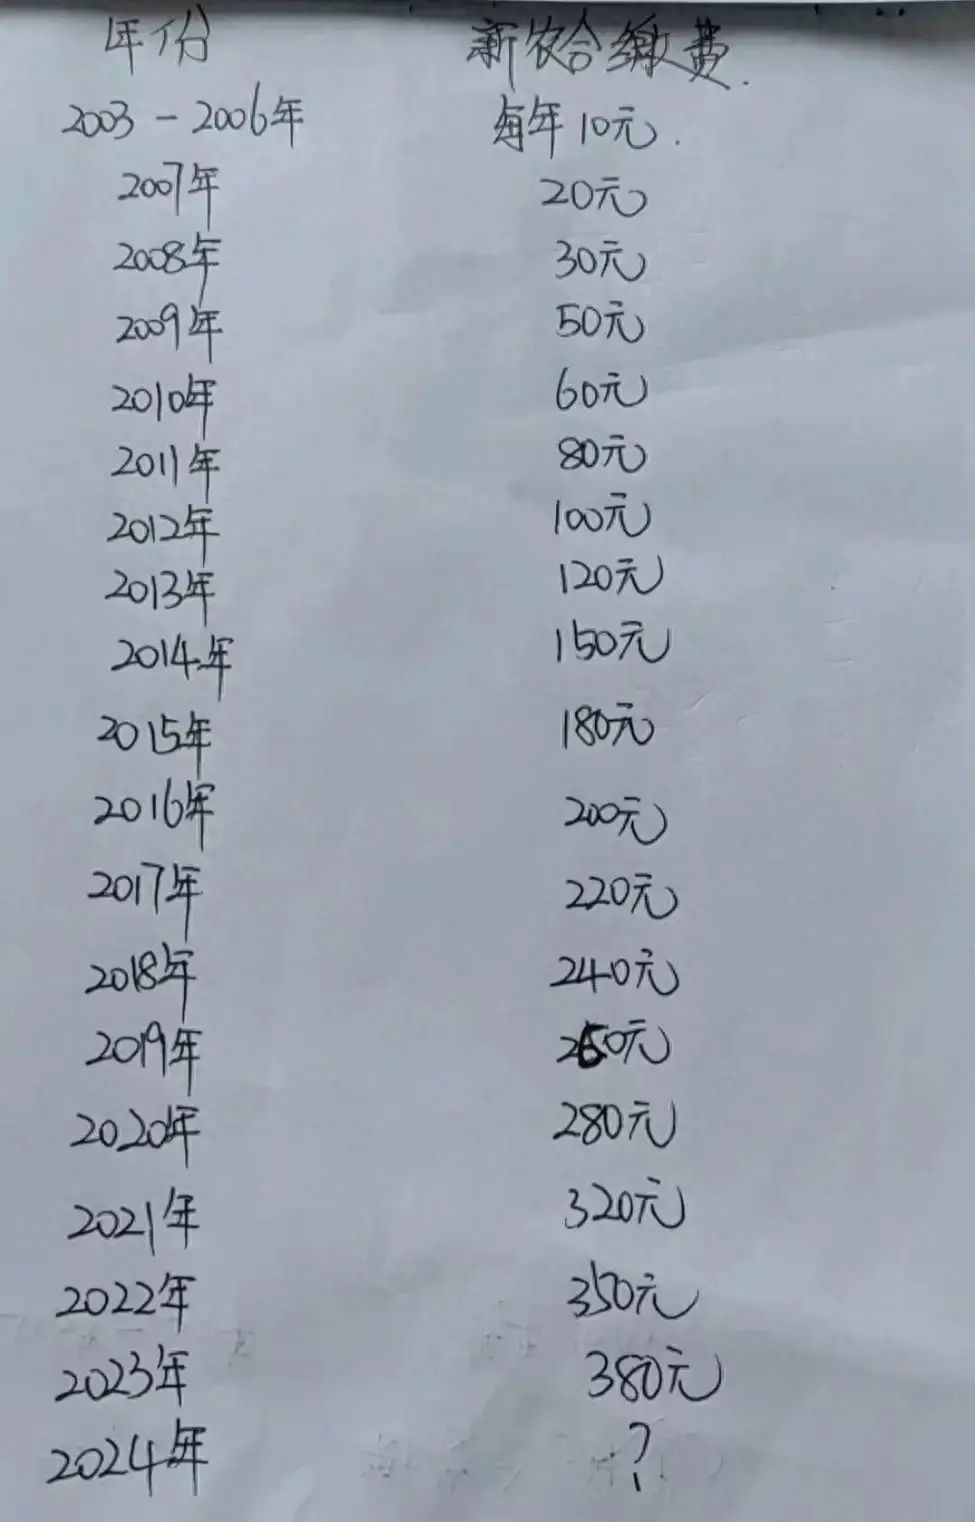 年份 新农合缴费.
2003-2006年 每年10元.
2007年 20元
2008年 30元
2009年 50元
2010年 60元
2011年 80元
2012年 100元
2013年 120元
2014年 150元
2015年 180元
2016年 200元
2017年 220元
2018年 240元
2019年 250元
2020年 280元
2021年 320元
2022年 350元
2023年 380元
2024年 ?